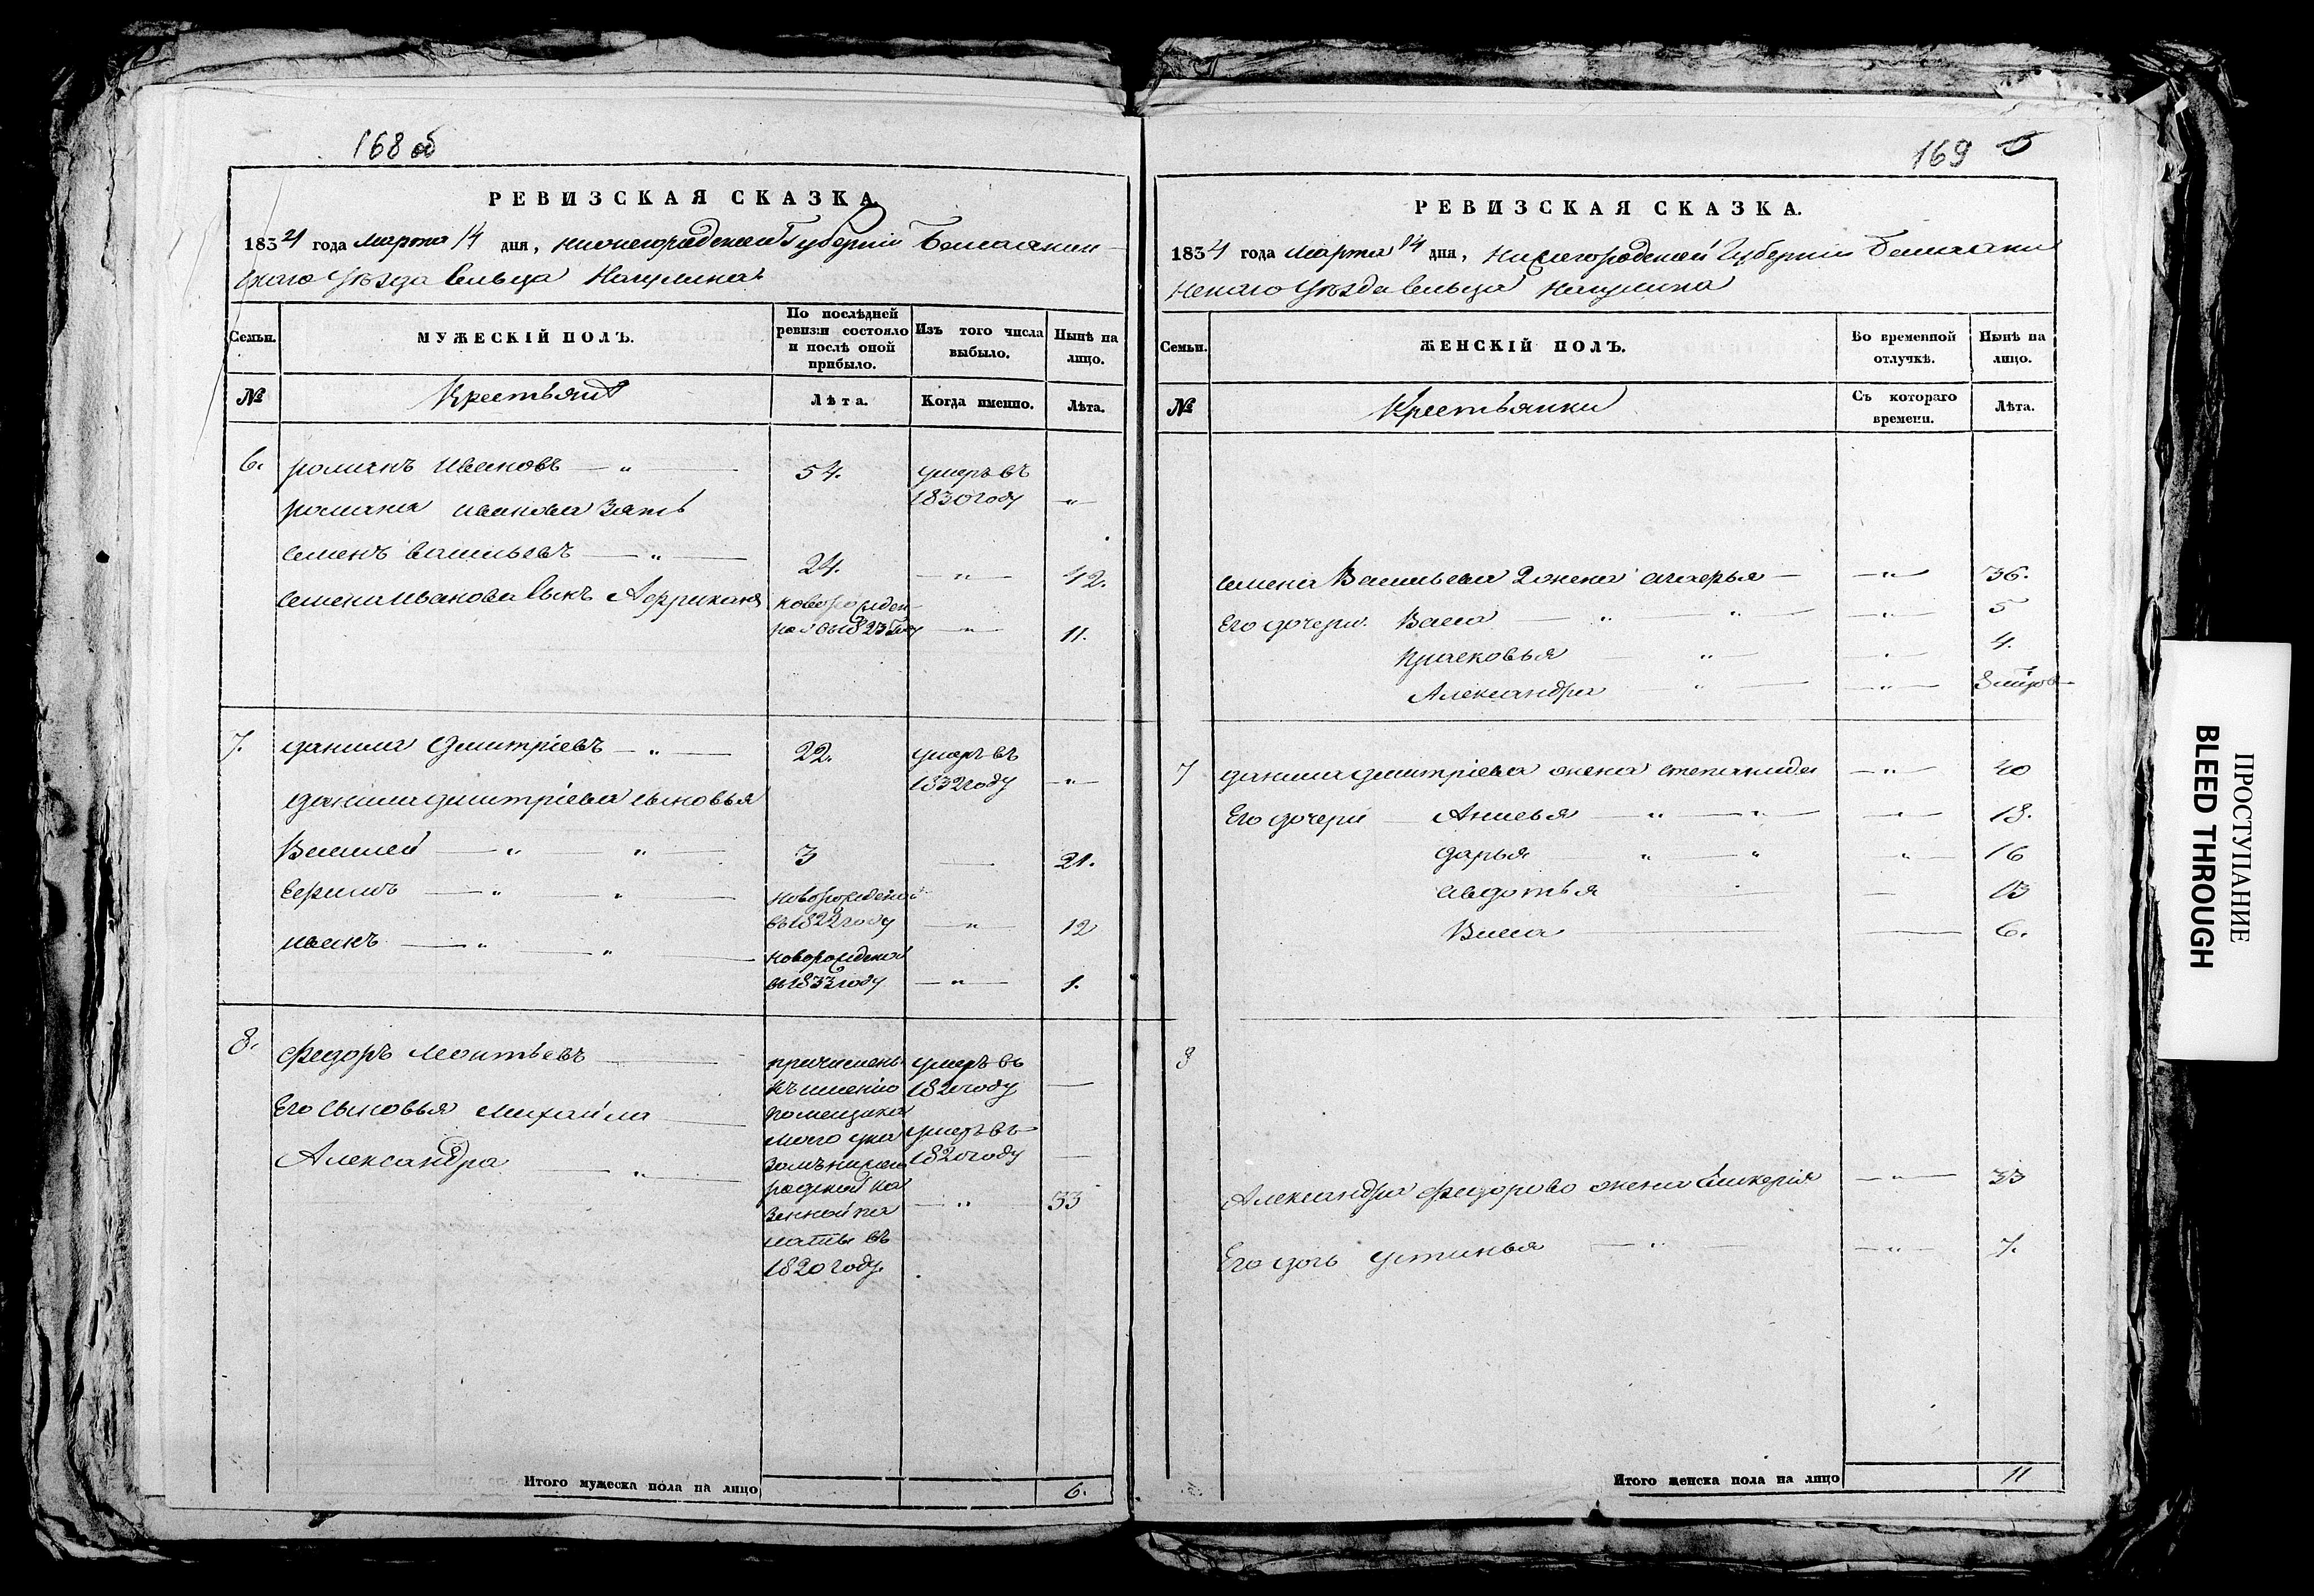 168 об
РЕВИЗСКАЯ СКАЗКА.
1834 года Марта 14 дня, Нижегородской Губернии
скаго Уѣзда Сельца
Семьи.
МУЖЕСКІЙ ПОЛЪ.
По послѣдней ревизіи состояло и послѣ оной прибыло.
Изъ того числа выбыло.
Нынѣ на лицо.
№
Крестьяне
Лѣта.
Когда именно.
Лѣта.
6.
Романъ Ивановъ — „ —
54.
умеръ въ
1830 году
— „ —
Романа Иванова Зять
Семенъ Васильевъ — „ —
24.
— „ —
42.
Семена Иванова Сынъ
новорожден
ной въ 1823 году
— „ —
11.
7.
Данила Дмитріевъ — „ —
22.
умеръ въ
1832 году
— „ —
Данила Дмитріева сыновья
Василей — „ — „ —
3
—
21.
Ефимъ — „ — „ —
новорожденой
въ 1822 году
— „ —
12
Иванъ — „ — „ —
новорожденой
въ 1833 году
— „ —
1.
8.
Федоръ Леонтьевъ —
причислены
къ имению
помещика
моего ука
зомъ нижего
родской ка
зенной па
латы въ
1820 году.
умеръ въ
1820 году
—
Его сыновья Михайла —
умеръ въ
1820 году
—
Александра — „ —
— „ —
33
Итого мужеска пола на лицо
6.
169
РЕВИЗСКАЯ СКАЗКА.
1834 года Марта 14 дня, Нижегородской Губернии
Уѣзда Сельца
Семьи.
ЖЕНСКІЙ ПОЛЪ.
Во временной отлучкѣ.
Нынѣ на лицо.
№
Крестьянки
Съ котораго времени.
Лѣта.
Семена Васильева 2 жена —
— „ —
36.
Его дочери. Васа — „ — „ —
— „ —
5
Прасковья — „ —
— „ —
4.
Александра — „ —
— „ —
7
Данила Дмитріева жена Степанида
— „ —
40
Его дочери — Анисья — „ — „ —
— „ —
18.
Дарья — „ — „
„
16
Авдотья —
—
13
Васа —
—
6.
8
Александра Федорово жена
— „ —
33
Его дочь Устинья — „ —
— „ —
7.
Итого женска пола на лицо
11
ПРОСТУПАНИЕ
BLEED THROUGH